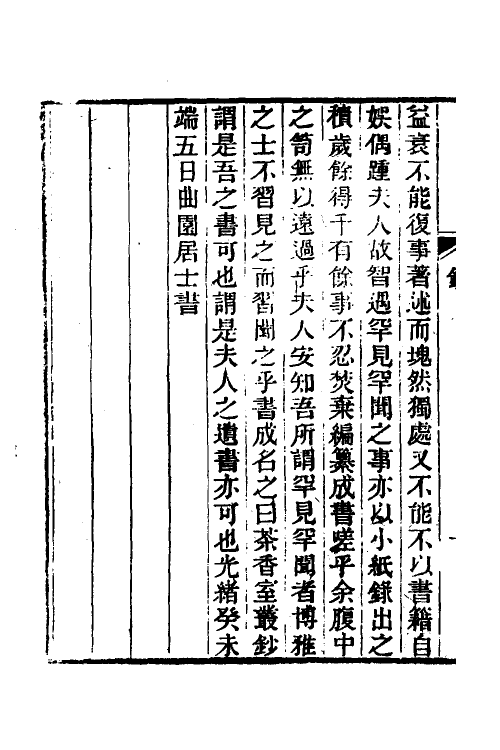 益衰不能復事著述而塊然獨處又不能不以書籍自
娛偶踵夫人故智遇罕見罕聞之事亦以小紙錄出之
積歲餘得千有餘事不忍焚棄編纂成書嗟乎余腹中
之笥無以遠過乎夫人安知吾所謂罕見罕聞者博雅
之士不習見之而習聞之乎書成名之曰茶香室叢鈔
謂是吾之書可也謂是夫人之遺書亦可也光緒癸未
端五日曲園居士書